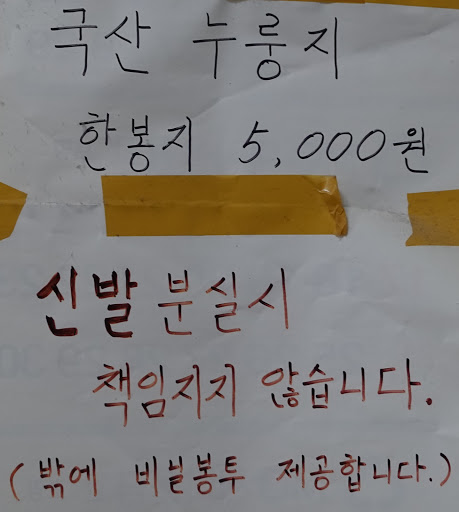 국산 누룽지
한봉지 5,000원
신발 분실시
책임지지 않습니다.
(밖에 비닐봉투 제공합니다.)